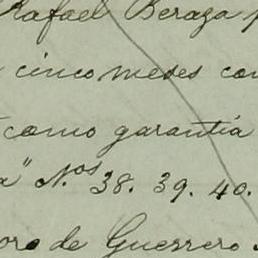 Rafael Beraza p
cinco meses con
como garantía
a" N.os 38. 39. 40.
oro de Guerrero